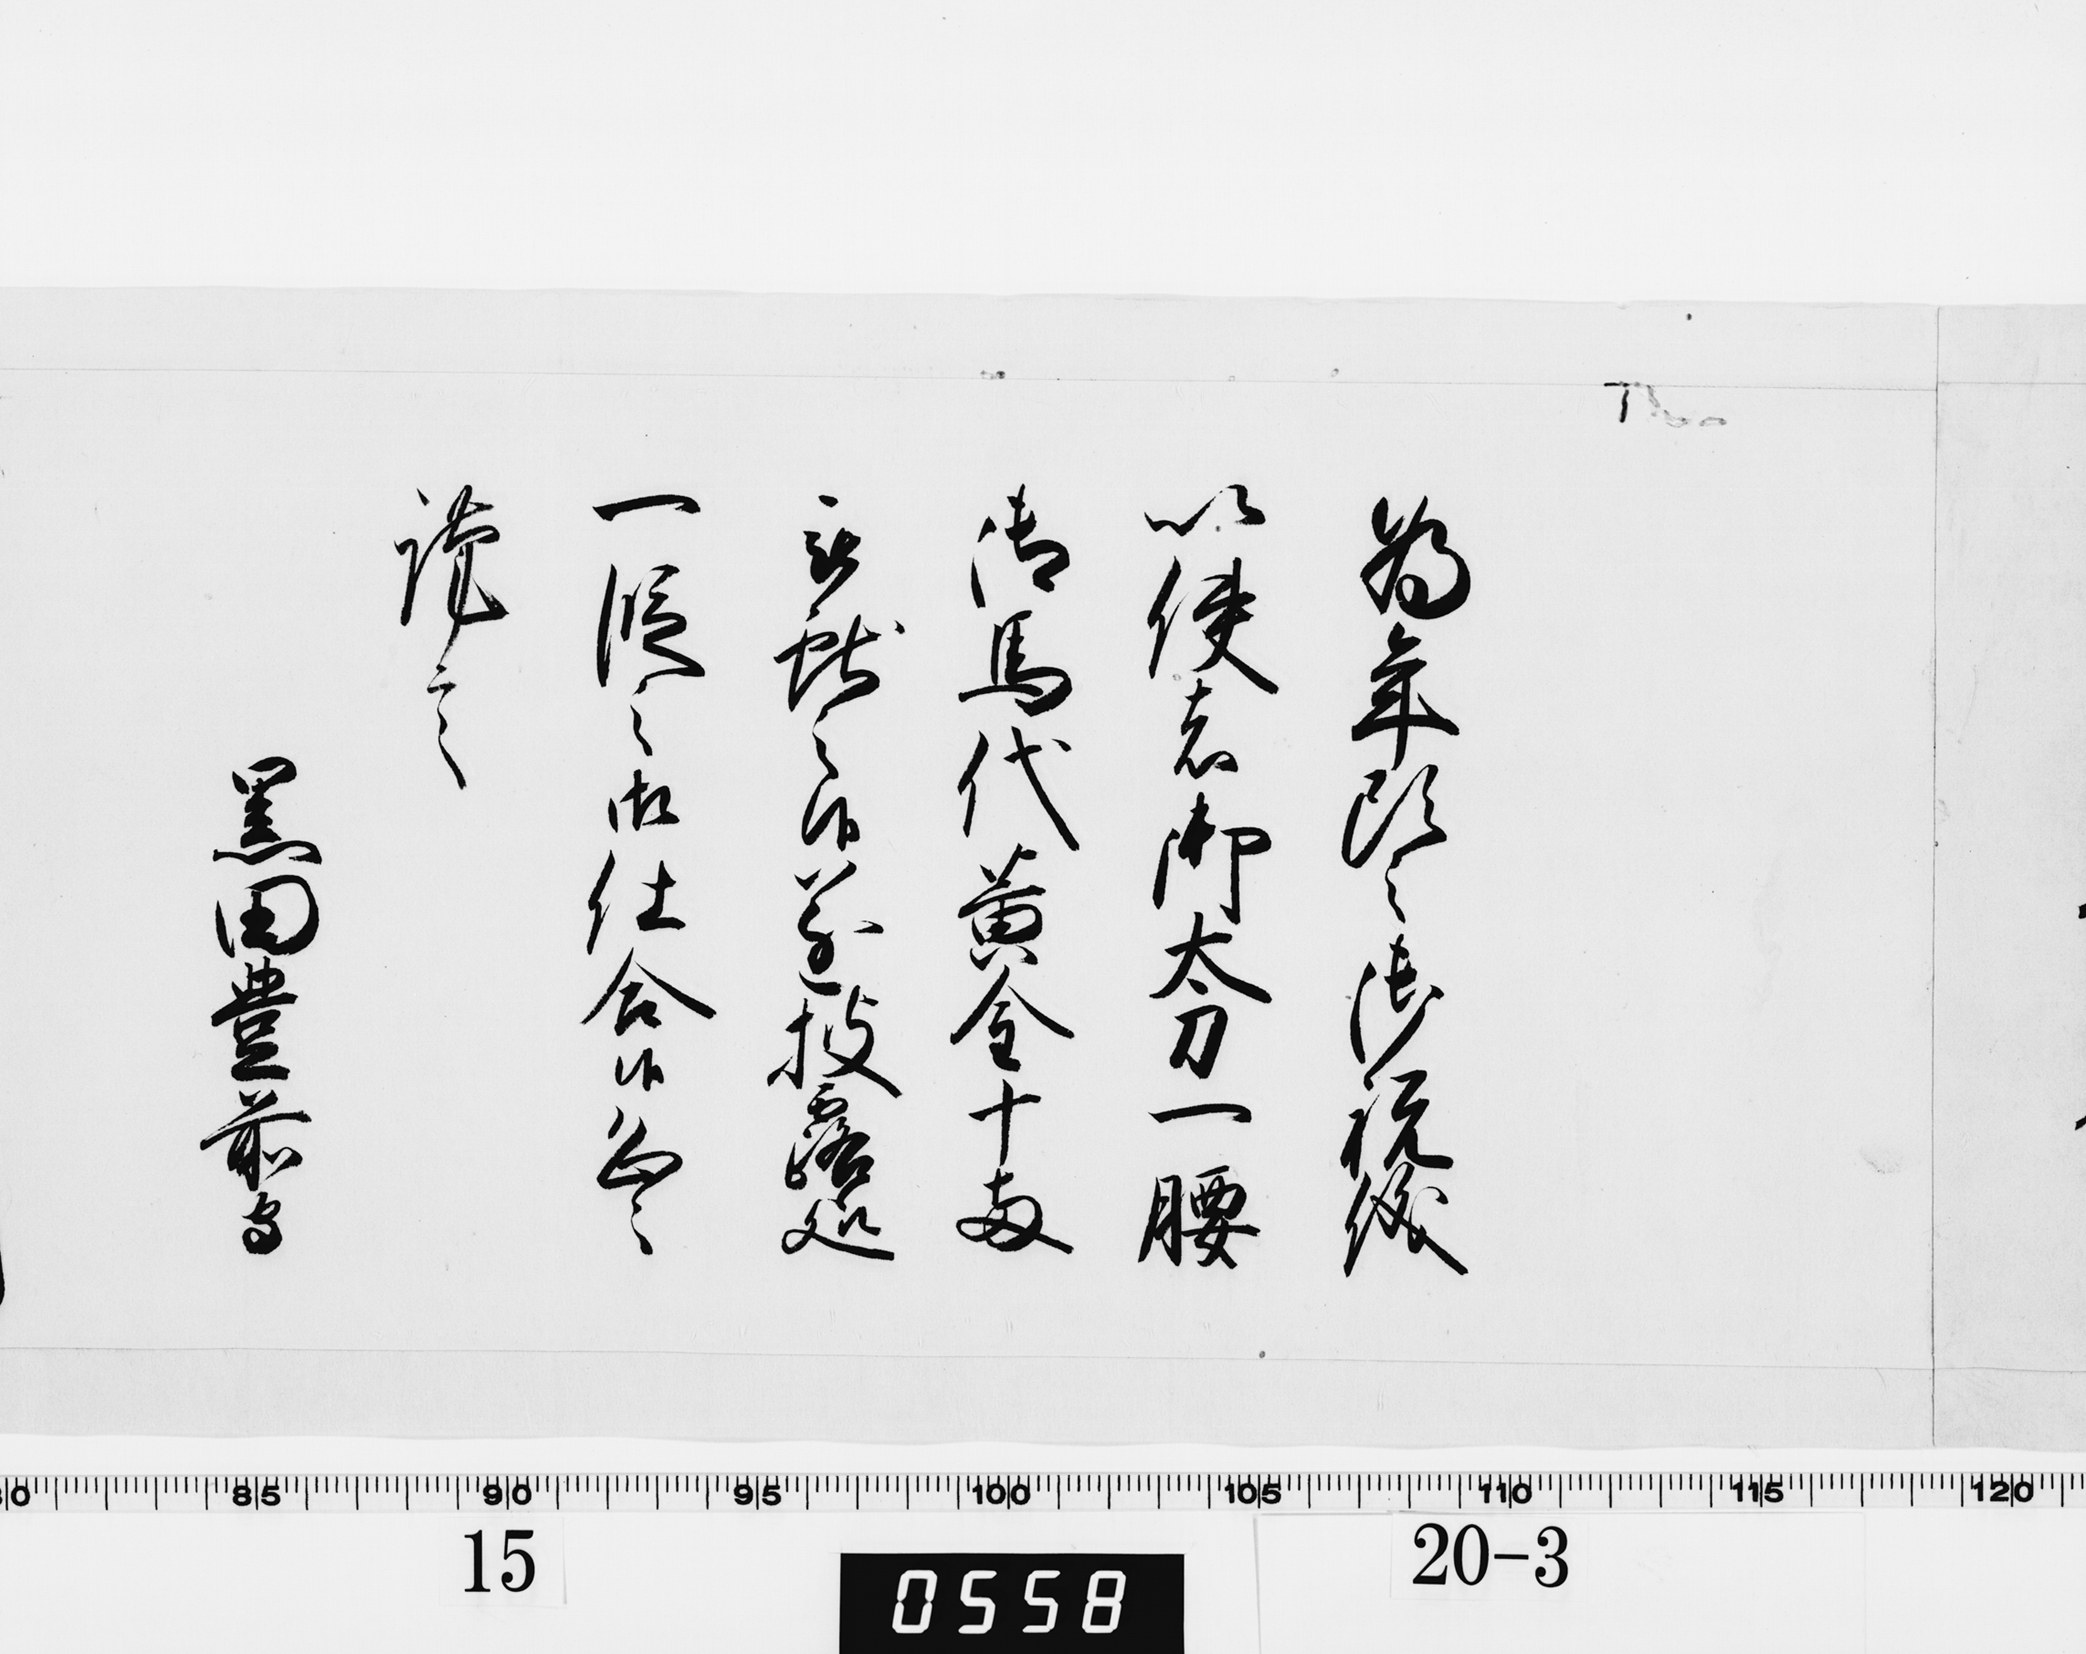 為年頭之御祝儀
以使者御太刀一腰
御馬代黄金十両
被献之候遂披露処
一段之御仕合候恐々
謹言
黒田豊前守
80 85 90 95 100 105 110 115 120
15
0558
20-3